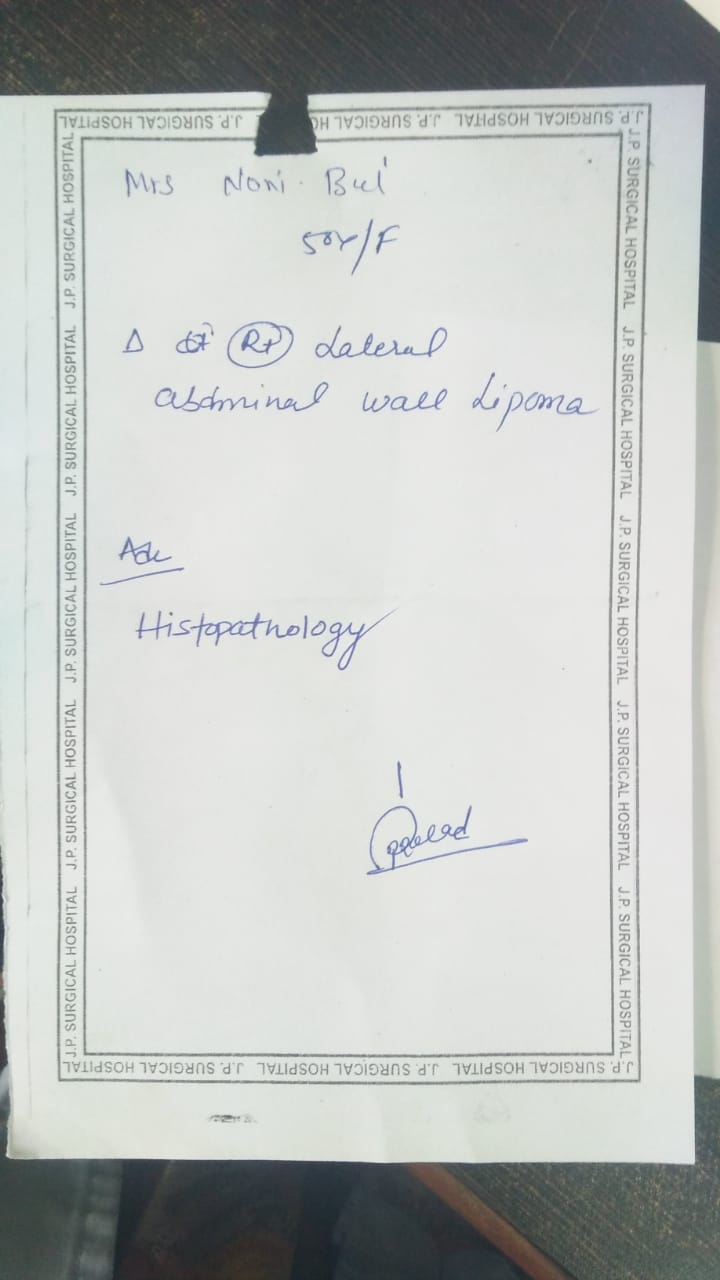 J.P. SURGICAL HOSPITAL J.P. SURGICAL HOSPITAL J.P. SURGICAL HOSPITAL
Mrs Noni
50Y/F
Δ Rt Lateral
abdminal wall Lipoma
Adv
Histopathology
J.P. SURGICAL HOSPITAL J.P. SURGICAL HOSPITAL J.P. SURGICAL HOSPITAL J.P. SURGICAL HOSPITAL J.P. SURGICAL HOSPITAL
J.P. SURGICAL HOSPITAL J.P. SURGICAL HOSPITAL J.P. SURGICAL HOSPITAL J.P. SURGICAL HOSPITAL J.P. SURGICAL HOSPITAL
J.P. SURGICAL HOSPITAL J.P. SURGICAL HOSPITAL J.P. SURGICAL HOSPITAL